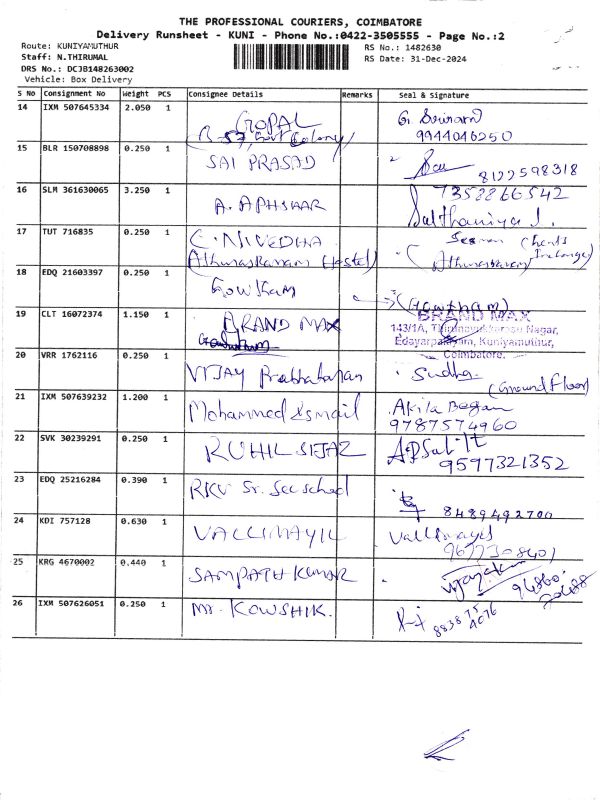 THE PROFESSIONAL COURIERS, COIMBATORE
Delivery Runsheet - KUNI - Phone No.:0422-3505555 - Page No.:2
Route: KUNIYAMUTHUR
RS No.: 1482630
Staff: N.THIRUMAL
RS Date: 31-Dec-2024
DRS No.: DCJB148263002
Vehicle: Box Delivery
S No Consignment No Weight PCS Consignee Details Remarks Seal & Signature
14 IXM 507645334 2.050 1 GOPAL
9944046250
15 BLR 150708898 0.250 1 SAI PRASAD
8122598318
16 SLM 361630065 3.250 1 A. APHSAAR 7358866542
Salthaniya J.
17 TUT 716835 0.250 1 C. NIVEDHA
(Hostel)
18 EDQ 21603397 0.250 1 Gowtham
(Gowtham)
19 CLT 16072374 1.150 1 BRAND MAX BRAND MAX
143/1A, Thirunavukkarasu Nagar,
Edayarpalayam, Kuniyamuthur,
Coimbatore.
20 VRR 1762116 0.250 1 VIJAY Prabhakaran Sudha
(Ground Floor)
21 IXM 507639232 1.200 1 Mohammed Ismail Akila Begam
9787574960
22 SVK 30239291 0.250 1 RUHIL SIJAZ
9597321352
23 EDQ 25216284 0.390 1 RKV Sr. Sec school
8489492700
24 KDI 757128 0.630 1 VALLIMAYIL Vallimayil
9677308401
25 KRG 4670002 0.440 1 SAMPATH KUMAR Vijayakumar
94860
26 IXM 507626051 0.250 1 Mr. KOWSHIK.
8838
4076